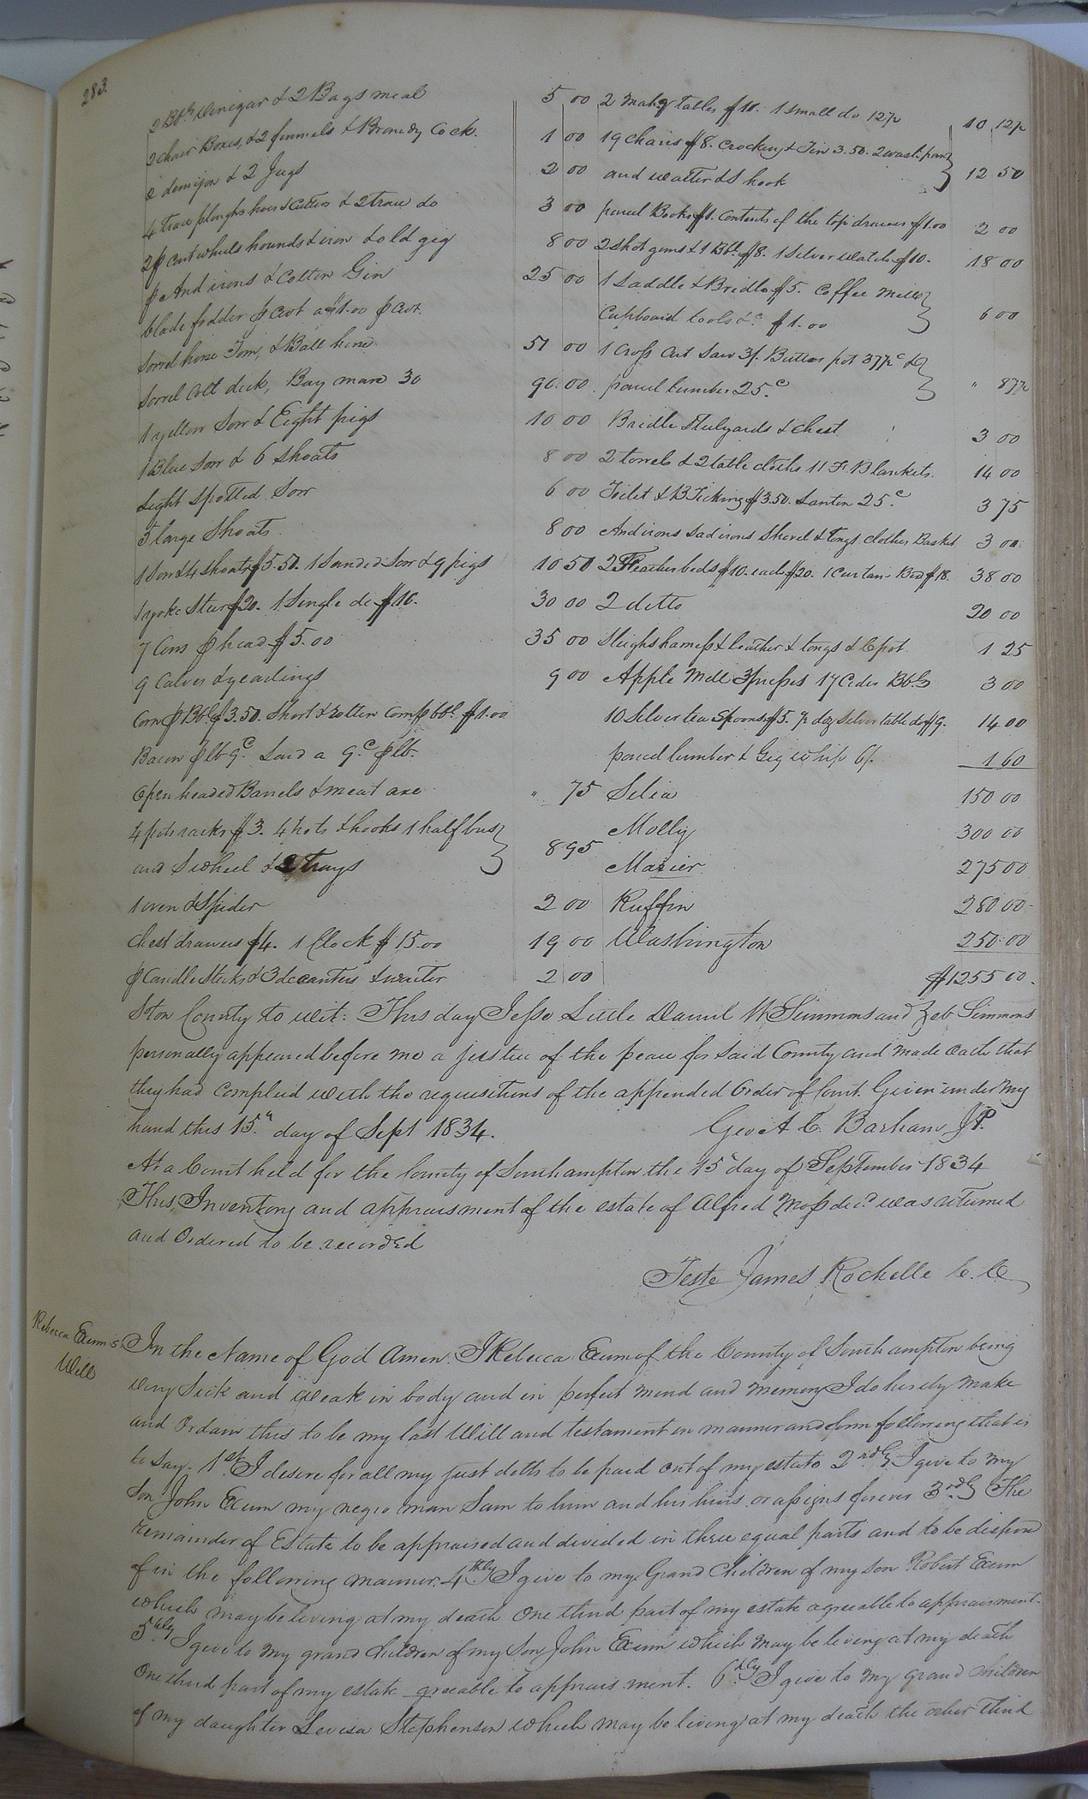 283
2 Bbls Vinegar & 2 Bags meal 5 00
2 chair Boxes, & 2 funnels & Brandy Cock. 1 00
2 demijon & 2 Jugs 2 00
4 trace ploughs hoes & Cutters & 2 trace do 3 00
cart wheels hounds & iron & old gig 8 00
And irons & Cotton Gin 25 00
blade fodder
Sorrel horse Tom, & Ball horse 51 00
Sorrel Colt dick, Bay mare 30 90.00
1 yellow Sow & Eight pigs 10 00
1 Blue Sow & 6 Shoats 8 00
Light Spotted Sow 6 00
5 large Shoats 8 00
1 Sow & 4 shoats $5.50. 1 Sanded Sow & 9 pigs 10 50
1 yoke Steers $20. 1 Single do $10. 30 00
7 Cows p head $5.00 35 00
9 Calves & yearlings 9 00
Corn p Bbl $3.50. Short & rotten Corn p bbl. $1.00
Bacon p lb 9c. Lard a 9c p lb.
Open headed Barrels & meat axe " 75
4 pot racks $3. 4 pots & hooks 1 half bus
and S wheel & 2 trays 8 95
1 oven & Spider 2 00
Chest drawers $4. 1 Clock $15.00 19 00
p Candlesticks & 3 decanters & waiter 2 00
2 Mahg tables $10. 1 small do 12½ 10 12½
19 chairs $8. Crockery & Tin 3.50. 2 wash pans
and waiter & S hook 12 50
parcel Books $1. Contents of the top drawers $1.00 2 00
2 shot guns & 1 Bbl. $8. 1 Silver watch $10. 18 00
1 Saddle & Bridle $5. Coffee Mill
Cupboard tools &c $1.00 6 00
1 Cross Cut Saw 3/. Butter pot 37½c &
parcel lumber 25.c " 87½
Bridle Stulyards & chest 3 00
2 towels & 2 table cloths 11 Blankets. 14 00
Toilet & B Ticking $3.50. Lantin 25.c 3 75
And irons Sad irons Shovel & tongs clothes Basket 3 00
2 Feather beds $10. each $20. 1 Curtain Bed $18. 38 00
2 ditto 20 00
Sleigh harness & leather & tongs & pot 1 25
Apple Mill 3 presses 17 Cider Bbls 3 00
10 Silver tea Spoons $5. ½ doz Silver table do $9. 14.00
parcel lumber & Gig whip 6/. 1 60
Silia 150 00
Molly 300 00
Mazier 275 00
Ruffin 280 00
Washington 250.00
$1255 00
Ston County to wit: This day Jesse Little Daniel W Simmons and Zeb Simmons
personally appeared before me a justice of the peace for said County and made oath that
they had complied with the requisitions of the appended Order of Court. Given under my
hand this 15th day of Sept 1834. Geo A. C. Barham J P.
At a Court held for the County of Southampton the 15 day of September 1834
This Inventory and appraisment of the estate of Alfred Moss decd was returned
and Ordered to be recorded
Teste James Rochelle C. C.
Rebecca Exum's
Will
In the Name of God Amen. I Rebecca Exum of the County of Southampton being
very Sick and Weak in body and in perfect mind and memory I do hereby make
and Ordain this to be my last Will and testament in manner and form following that is
to Say. 1st I desire for all my just debts to be paid out of my estate 2ndly I give to my
Son John Exum my negro man Sam to him and his heirs or assigns forever 3rdly The
remainder of Estate to be appraised and divided in three equal parts and to be dispond
of in the following manner. 4thly I give to my Grand Children of my son Robert Exum
which may be living at my death One third part of my estate agreeable to appraisment.
5thly I give to my grand Children of my Son John Exum which may be living at my death
One third part of my estate greeable to apprais ment. 6thly I give to my grand children
of my daughter Levisa Stephenson which may be living at my death the other third